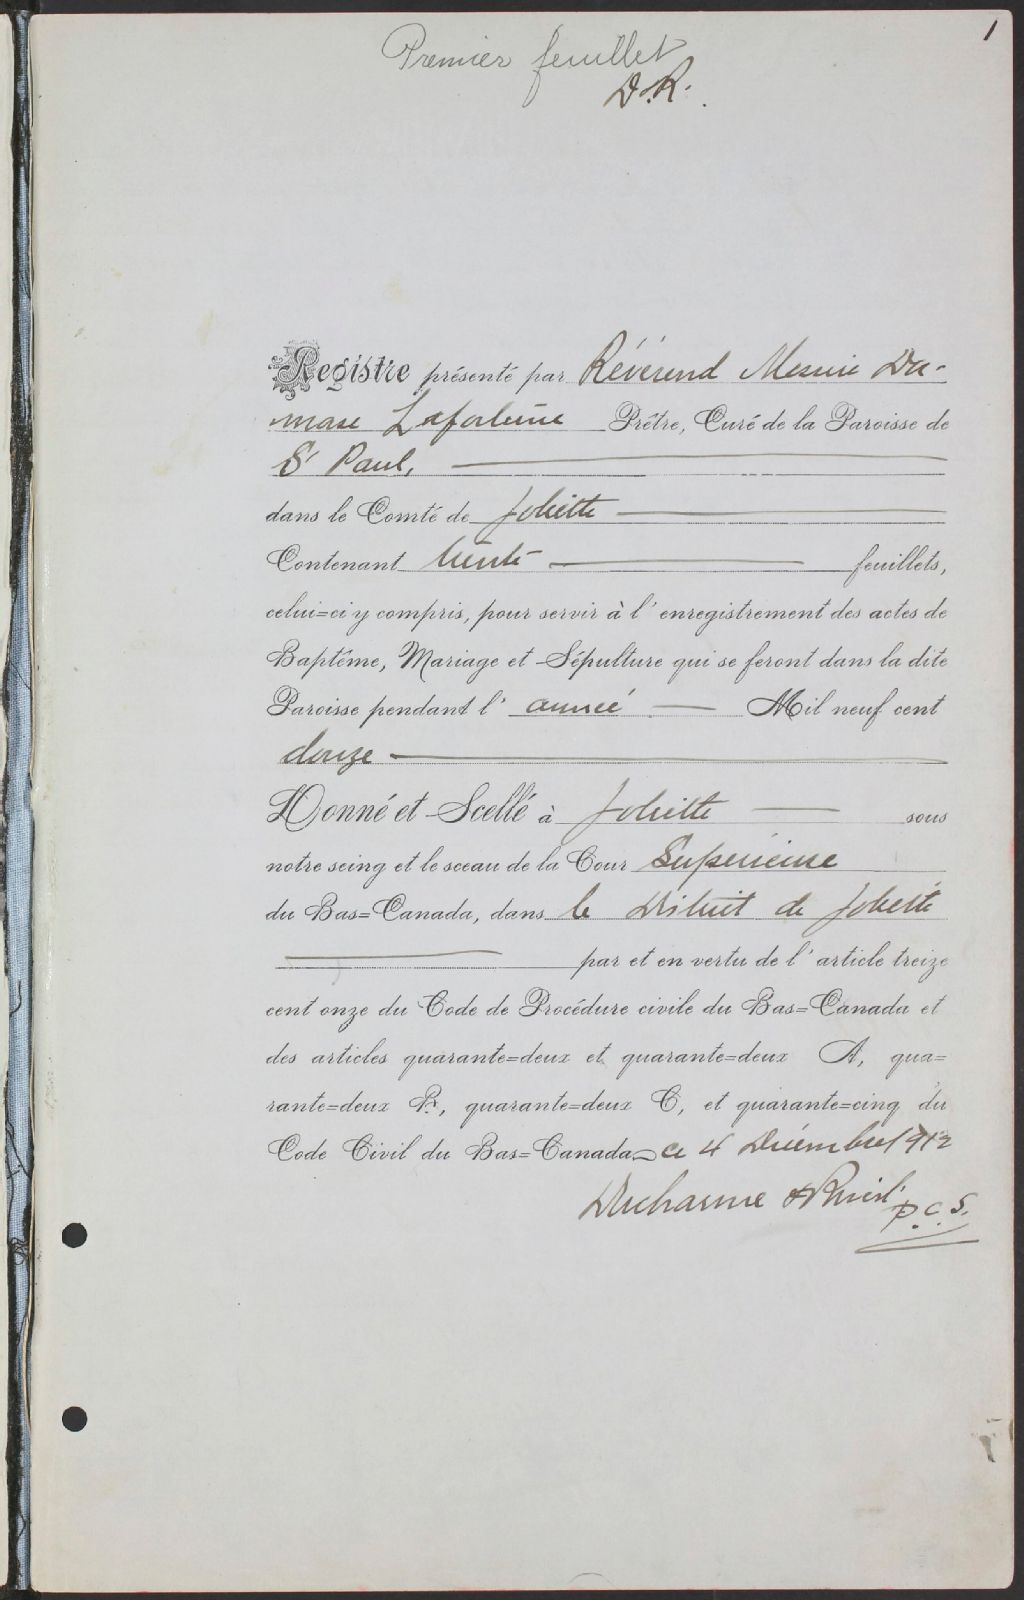 1
Premier feuillet
D.R.
Registre présenté par Révérend Messire Da-
mase Lafortune Prêtre, Curé de la Paroisse de
St Paul,
dans le Comté de Joliette
Contenant trente feuillets,
celui=ci y compris, pour servir à l'enregistrement des actes de
Baptême, Mariage et Sépulture qui se feront dans la dite
Paroisse pendant l'année Mil neuf cent
douze
Donné et Scellé à Joliette sous
notre seing et le sceau de la Cour Supérieure
du Bas=Canada, dans le District de Joliette
par et en vertu de l'article treize
cent onze du Code de Procédure civile du Bas=Canada et
des articles quarante=deux et quarante=deux A, qua=
rante=deux B, quarante=deux C, et quarante=cinq du
Code Civil du Bas=Canada ce 4 Décembre
Ducharme & P.C.S.